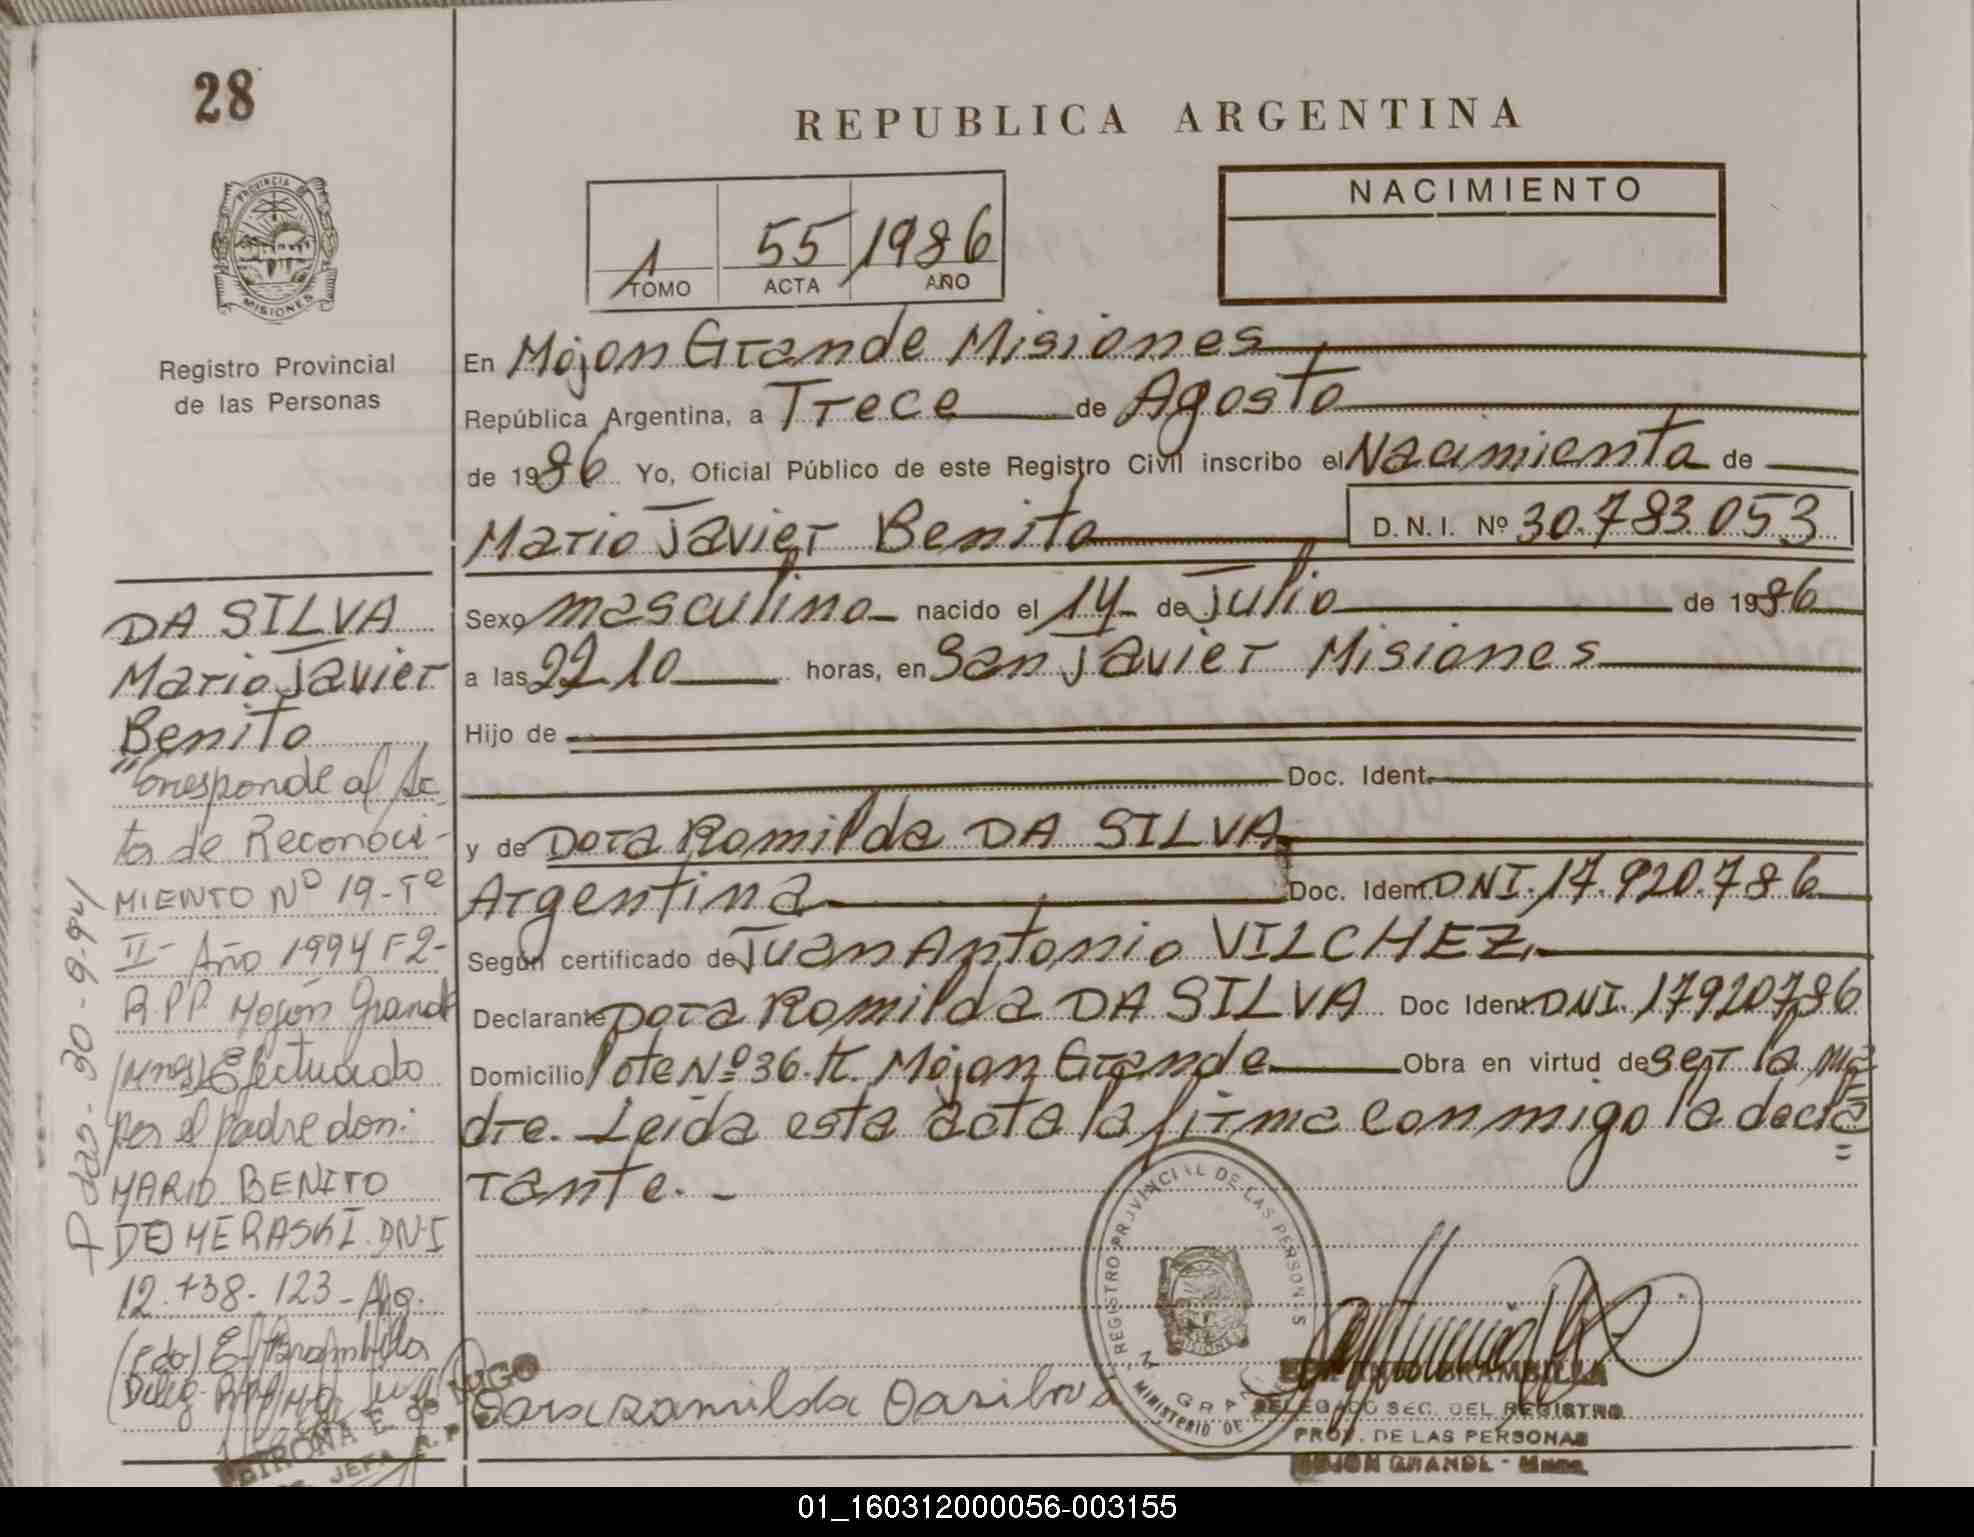 28
REPUBLICA ARGENTINA
PROVINCIA DE
MISIONES
Registro Provincial
de las Personas
1 55 1986
TOMO ACTA AÑO
NACIMIENTO
En Mojon Grande Misiones
República Argentina, a Trece de Agosto
de 1986 Yo, Oficial Público de este Registro Civil inscribo el Nacimiento de
Mario Javier Benito D.N.I. Nº 30.783.053
Sexo masculino nacido el 14 de Julio de 1986
a las 22.10 horas, en San Javier Misiones
Hijo de
Doc. Ident.
y de Dora Romilda DA SILVA
Argentina Doc. Ident. DNI. 17.920.786
Según certificado de Juan Antonio VILCHEZ.
Declarante Dora Romilda DA SILVA Doc Ident. DNI. 17920786
Domicilio lote Nº 36. Mojon Grande Obra en virtud de ser la ma
dre. Leida esta acta la firma conmigo la decla
=
rante. -
DA SILVA
Mario Javier
Benito
"Corresponde al Ac
ta de Reconoci-
MIENTO Nº 19-Tº
II- Año 1994 F2-
R.P.P. Mojón Grande
(Mnes) Efectuado
por el padre don:
MARIO BENITO
DOMERASKI. DNI
12.738.123-Arg.
(fdo) E. Brambilla
Deleg. RPP
Pdas. 30-9-94
Dora romilda Dasilva
REGISTRO PROVINCIAL DE LAS PERSONAS
MINISTERIO DE
BRAMBILLA
DELEGADO SEC. DEL REGISTRO
PROV. DE LAS PERSONAS
MOJON GRANDE - Mnes.
LUGO
JEFA
01_160312000056-003155